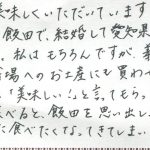 美味しくいただいています
飯田で、結婚して愛知県
、私はもちろんですが、
場へのお土産にも買わせ
「美味しい」と言ってもらっ
べると、飯田を思い出し、
に食べたくなってきてしまい